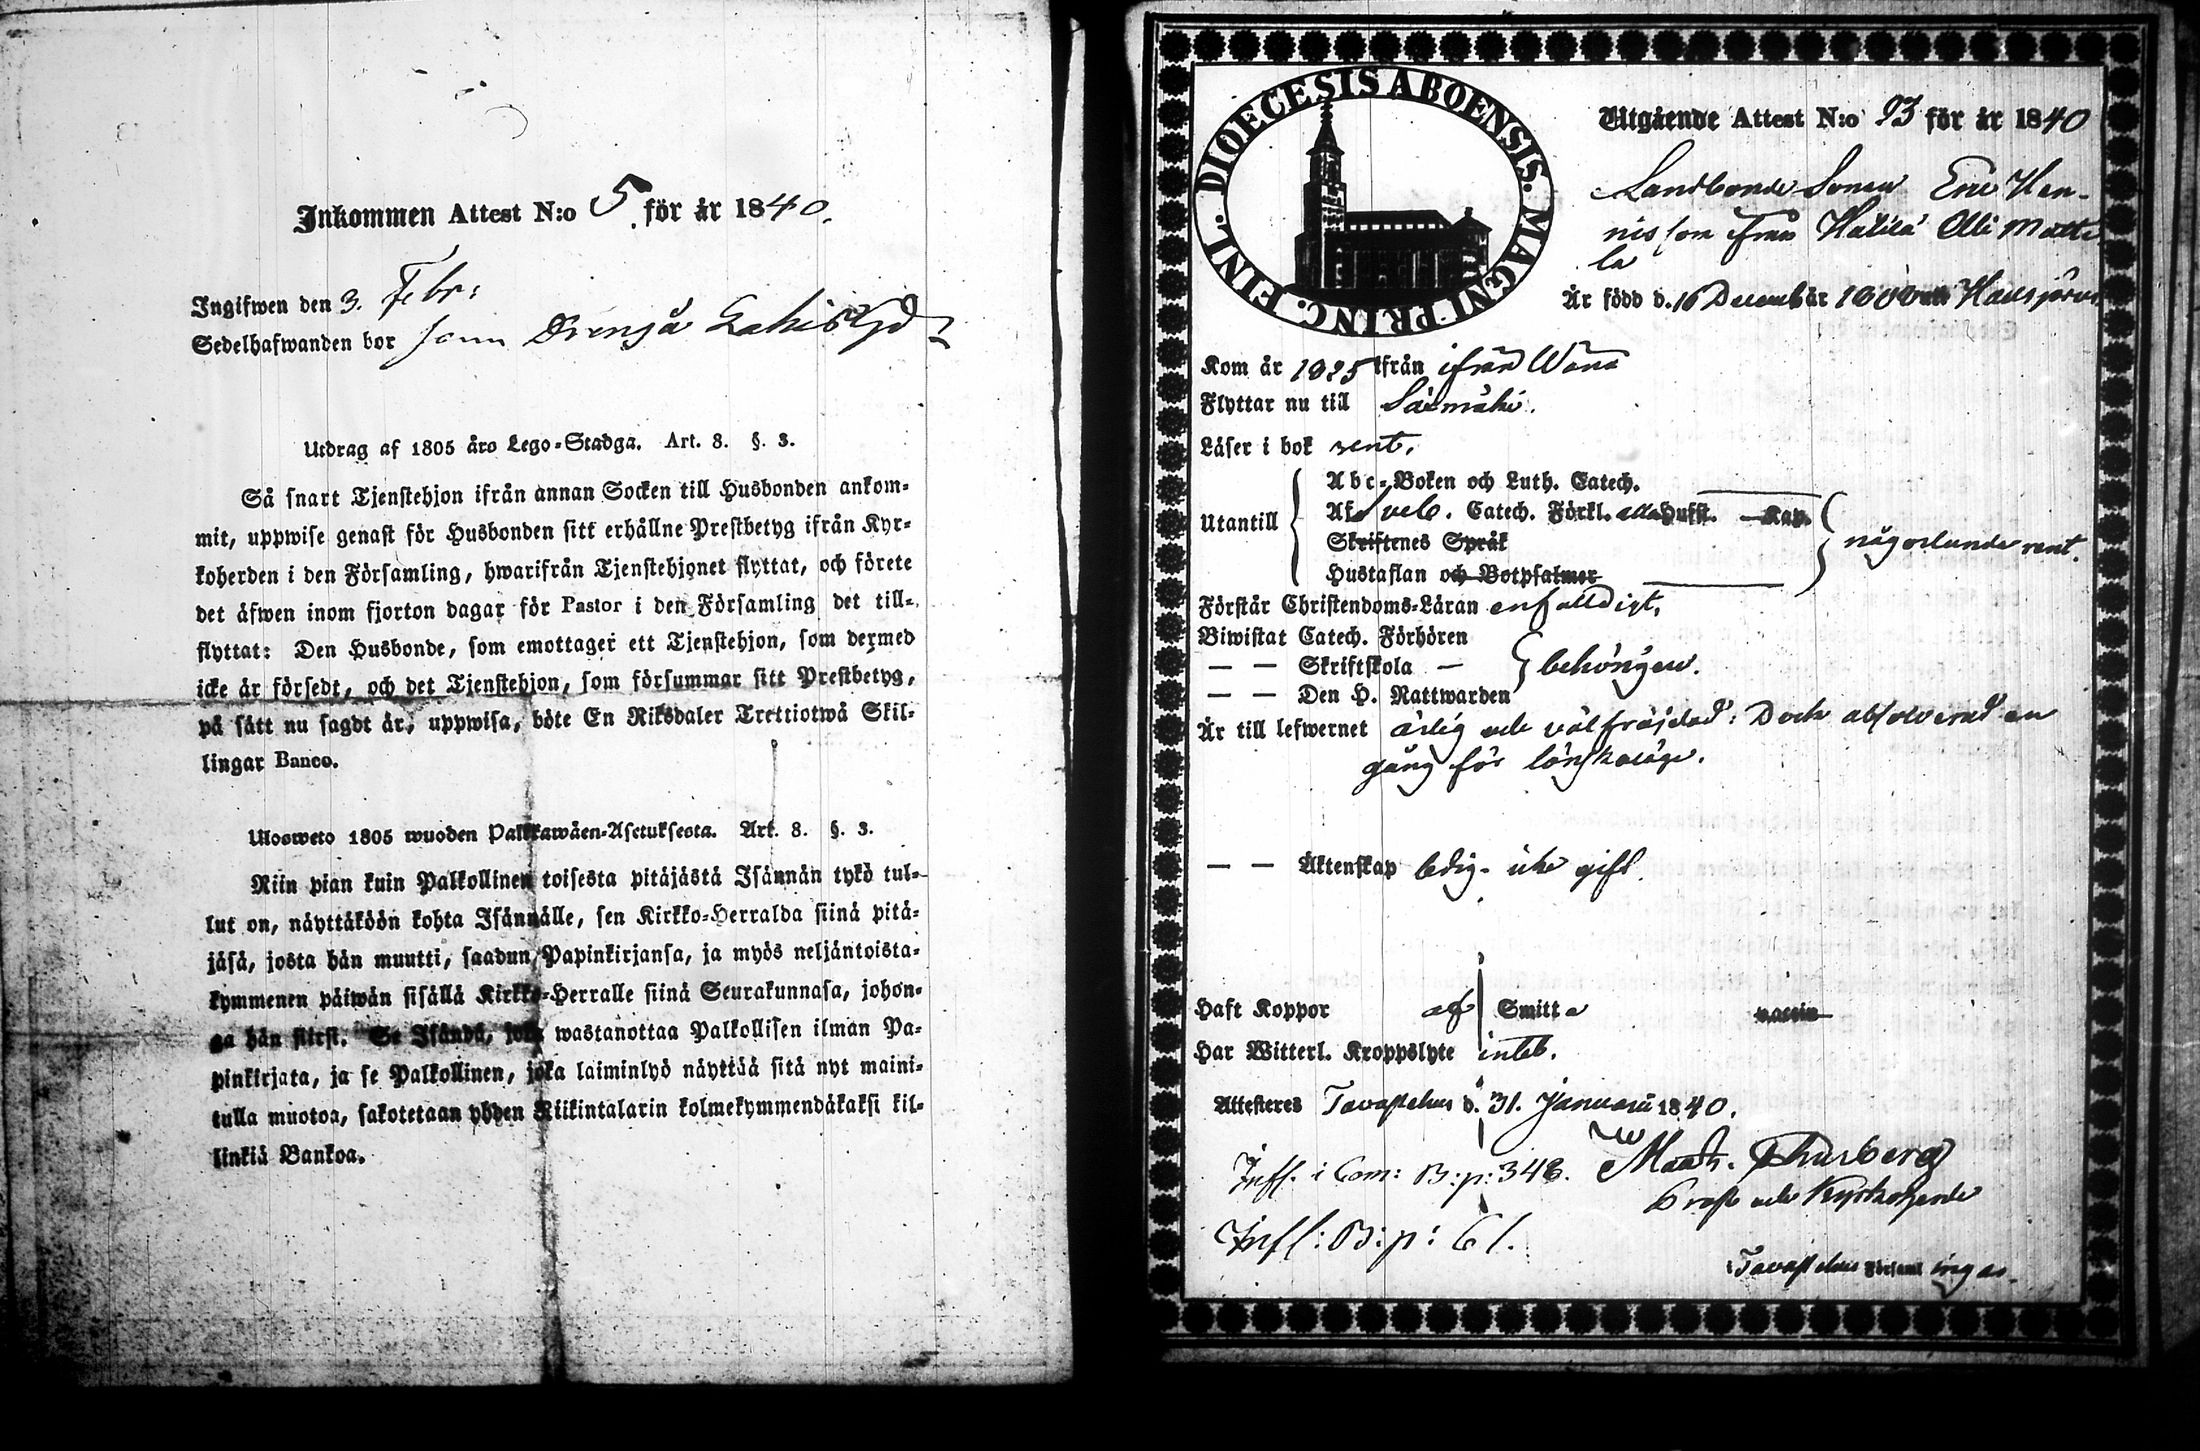 Inkommen Attest N:o 5 för år 1840.
Ingifwen den 3. Febr:
Sedelhafwanden bor som Dreng å
Utdrag af 1805 års Lego-Stadga. Art. 8. §. 3.
Så snart Tjenstehjon ifrån annan Socken till Husbonden ankom-
mit, uppwise genast för Husbonden sitt erhållne Prestbetyg ifrån Kyr-
koherden i den Församling, hwarifrån Tjenstehjonet flyttat, och förete
det äfwen inom fjorton dagar för Pastor i den Församling det till-
flyttat: Den Husbonde, som emottager ett Tjenstehjon, som dermed
icke är försedt, och det Tjenstehjon, som försummar sitt Prestbetyg,
på sätt nu sagdt är, uppwisa, böte En Riksdaler Trettiotwå Skil-
lingar Banco.
Ulosweto 1805 wuoden Palkkawäen-Asetuksesta. Art. 8. §. 3.
Niin pian kuin Palkollinen toisesta pitäjästä Isännän tykö tul-
lut on, näyttäköön kohta Isännälle, sen Kirkko-Herralda siinä pitä-
jäsä, josta hän muutti, saadun Papinkirjansa, ja myös neljäntoista-
kymmenen päiwän sisällä Kirkko-Herralle siinä Seurakunnasa, johon-
ga hän siirsi. Se Isändä, joka wastanottaa Palkollisen ilman Pa-
pinkirjata, ja se Palkollinen, joka laiminlyö näyttää sitä nyt maini-
tulla muotoa, sakotetaan yhden Riikintalarin kolmekymmendäkaksi kil-
linkiä Bankoa.
DIOECESIS ABOENSIS. MAGNI PRINC. FINL.
Utgående Attest N:o 93 för år 1840
Landbonde Sonen Eric Hen-
nisson från Hätilä Olli Matti
la
Är född d. 16 Decemb år Hausjärvi
Kom år 1825 ifrån ifrån Wånå
Flyttar nu till Säämäki.
Läser i bok rent.
Utantill
Abc-Boken och Luth. Catech.
Catech. Förkl. Hufst. Kap.
Skriftenes Språk
Hustaflan och Botpsalmer
någorlunda rent.
Förstår Christendoms-Läran enfalldigt.
Biwistat Catech. Förhören
— — Skriftskola — behörigen.
— — Den H. Nattwarden
Är till lefwernet ärlig och välfräjdad: Dock absolverad en
gång för lönskaläge.
— — Äktenskap ledig - icke gift
Haft Koppor af Smitta vaccin
Har Witterl. Kroppslyte intet.
Attesteres Tavastehus d. 31. Januarii 1840.
Inff. i Com: B: p: 348.
Infl: B: p: 61.
Thurberg
Prost och Kyrkoherde
i Tavastehus Församlingar.